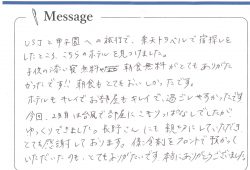 Message
USJと甲子園への旅行で、楽天トラベルで宿探しを
したところ、こちらのホテルを見つけました。
子供の添い寝無料や 朝食無料がとてもありがた
かったです!! 朝食もとてもおいしかったです。
ホテルもキレイでお部屋もキレイで、過ごしやすかったです
今回、2日目は台風で部屋にこもりっぱなしでしたが
ゆっくりできました。長野さんにも親切にしていただき
とても感謝しております。 フロントで預かって
いただいたりも、とてもありがたいです 本当にありがとうございました。